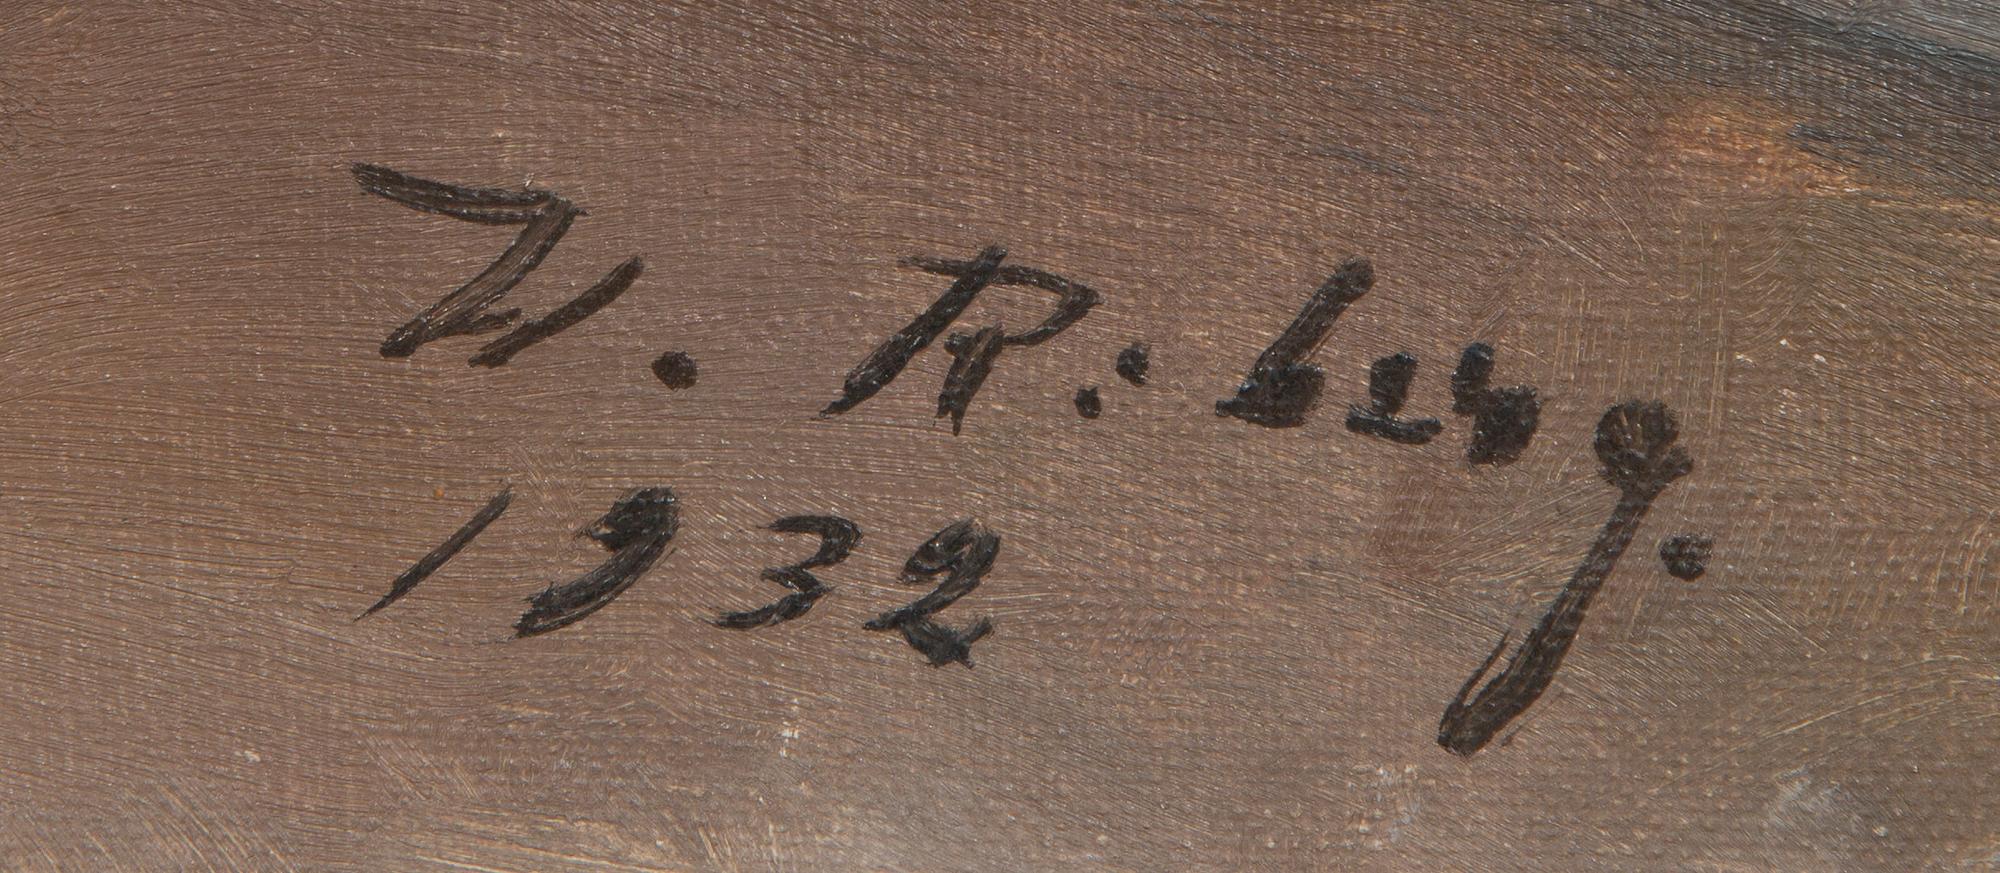 W. R:berg.
1932